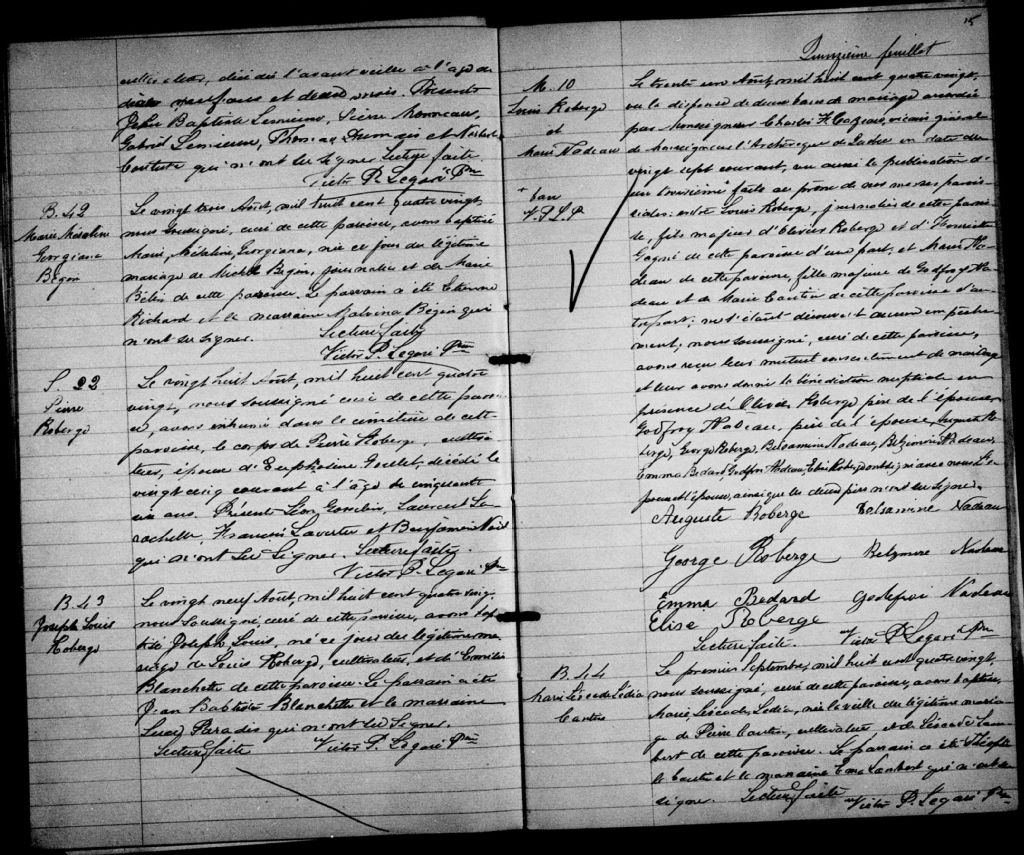 l'avant veille à l'age de
mois. Présents
John Baptiste Lemieux, Pierre Monneau,
Gabriel Lemieux, Thomas et Norbert
Couture qui n'ont su signer Lecture faite
Victor P. Legaré Ptre
B. 42
Marie Méseline
Georgiana
Bégin
Le vingt trois Août, mil huit cent quatre vingt,
nous soussigné, curé de cette paroisse, avons baptisé
Marie, Méseline, Georgiana, née ce jour du légitime
mariage de Michel Bégin, journalier et de Marie
Bélin de cette paroisse. Le parrain a été Etienne
Richard et la marraine Malvina Bégin qui
n'ont su signer. Lecture faite
Victor P. Legaré Ptre
S. 22
Pierre
Roberge
Le vingt huit Août, mil huit cent quatre
vingt, nous soussigné curé de cette parois
se, avons inhumé dans le cimetière de cette
paroisse, le corps de Pierre Roberge, cultiva
teur, époux d'Euphrosine Goulet, décédé le
vingt cinq courant à l'âge de cinquante
un ans. Présents Léon Gosselin, Laurent La
rochelle, Francois Lavertu et Benjamin Noël
qui n'ont su signer. Lecture faite
Victor P. Legaré Ptre
B. 43
Joseph Louis
Roberge
Le vingt neuf Août, mil huit cent quatre vingt,
nous soussigné, curé de cette paroisse, avons bap
tisé Joseph Louis, né ce jour du légitime ma
riage de Louis Roberge, cultivateur, et d'Emilie
Blanchette de cette paroisse. Le parrain a été
Jean Baptiste Blanchette et la marraine
Paradis qui n'ont su signer.
Lecture faite Victor P. Legaré Ptre
15
Quinzième feuillet
M. 10
Louis Roberge
et
Marie Nadeau
+ ban
V. P. L. P
Le trente un Août, mil huit cent quatre vingt,
vu la dispense de deux bans de mariage accordée
par Monseigneur Charles F. Cazeau, vicaire général
de Monseigneur l'Archevêque de Québec en date du
vingt sept courant, vu aussi la publication d'
un troisième faite au prône de nos messes parois
siales: entre Louis Roberge, journalier de cette parois
se, fils majeur d'Olivier Roberge et d'Henriette
Gagné de cette paroisse d'une part; et Marie Na
deau de cette paroisse, fille majeure de Godfroy Na
deau et de Marie Cantin de cette paroisse d'au
tre part; ne s'étant découvert aucun empêche
ment; nous soussigné, curé de cette paroisse,
avons reçu leur mutuel consentement de mariage
et leur avons donné la bénédiction nuptiale en
présence de Olivier Roberge père de l'époux,
Godfroy Nadeau, père de l'épouse, Auguste Ro
berge, George Roberge, Belsamine Nadeau, Belzmire Nadeau,
Emma Bédard, Godfroi Nadeau, Elise Roberge ont signé avec nous. L'é
poux et l'épouse, ainsi que les deux pères n'ont su signer.
Auguste Roberge Belsamine Nadeau
George Roberge Belzmire Nadeau
Emma Bedard Godefroi Nadeau
Elise Roberge
Lecture faite. Victor P. Legaré Ptre
B. 44
Marie Léocade Lédia
Cantin
Le premier Septembre, mil huit cent quatre vingt,
nous soussigné, curé de cette paroisse, avons baptisé,
Marie, Léocade, Lédia, née la veille du légitime maria
ge de Pierre Cantin, cultivateur, et de Léocade Lam
bert de cette paroisse. Le parrain a été Théophi
le Cantin et la marraine Lambert qui n'ont su
signer. Lecture faite Victor P. Legaré Ptre